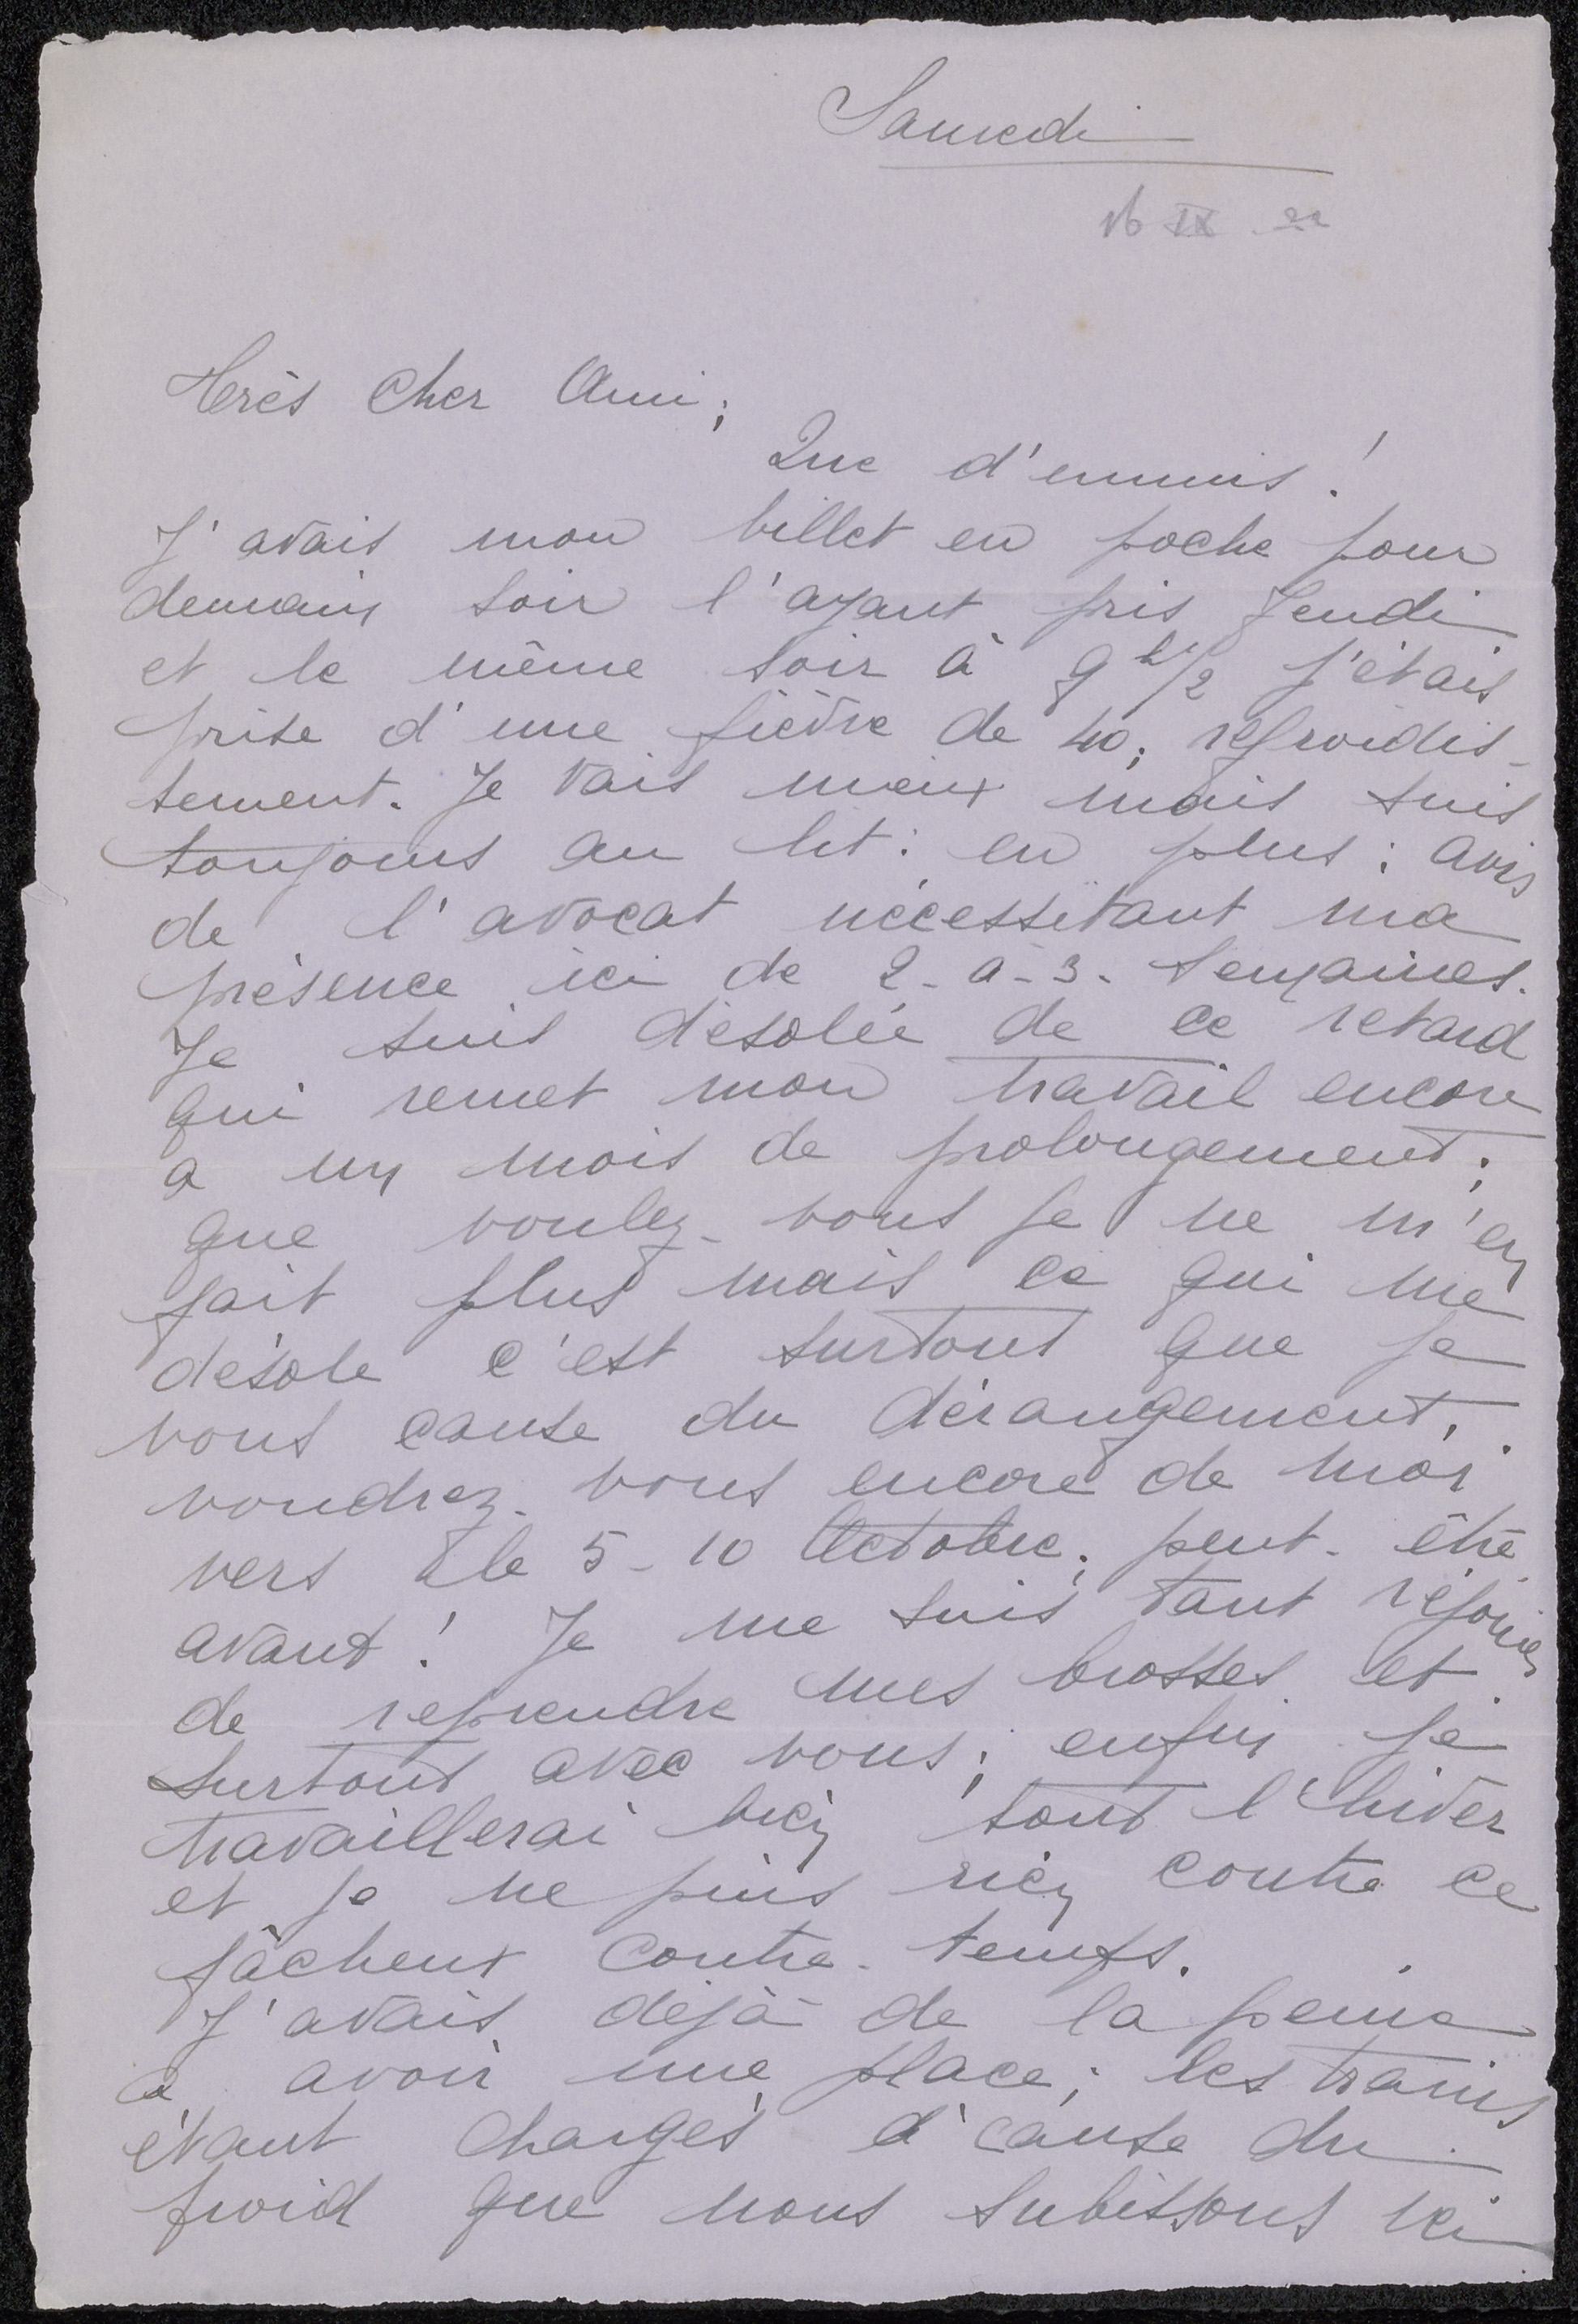 Samedi
16 IX 22
Très Cher Ami;
Que d'ennuis!
J'avais mon billet en poche pour
demain soir l'ayant pris Jeudi
et le même soir à 9 h 1/2 j'étais
prise d'une fièvre de 40; refroidis-
sement. Je vais mieux mais suis
toujours au lit: en plus: avis
de l'avocat nécessitant ma
présence ici de 2-à-3- Semaines.
Je suis désolée de ce retard
qui remet mon travail encore
a un mois de prolongement;
que voulez-vous je ne m'en
fait plus mais ce qui me
désole c'est surtout que je
vous cause du dérangement,
voudrez-vous encore de moi
vers le 5-10 Octobre; peut-être
avant! Je me suis tant réjouie
de reprendre mes brosses et
surtout avec vous; enfin je
travaillerai bien tout l'hiver
et je ne puis rien contre ce
fâcheux contre-temps.
J'avais déjà de la peine
à avoir une place; les trains
étant chargés à cause du
froid que nous subissons ici